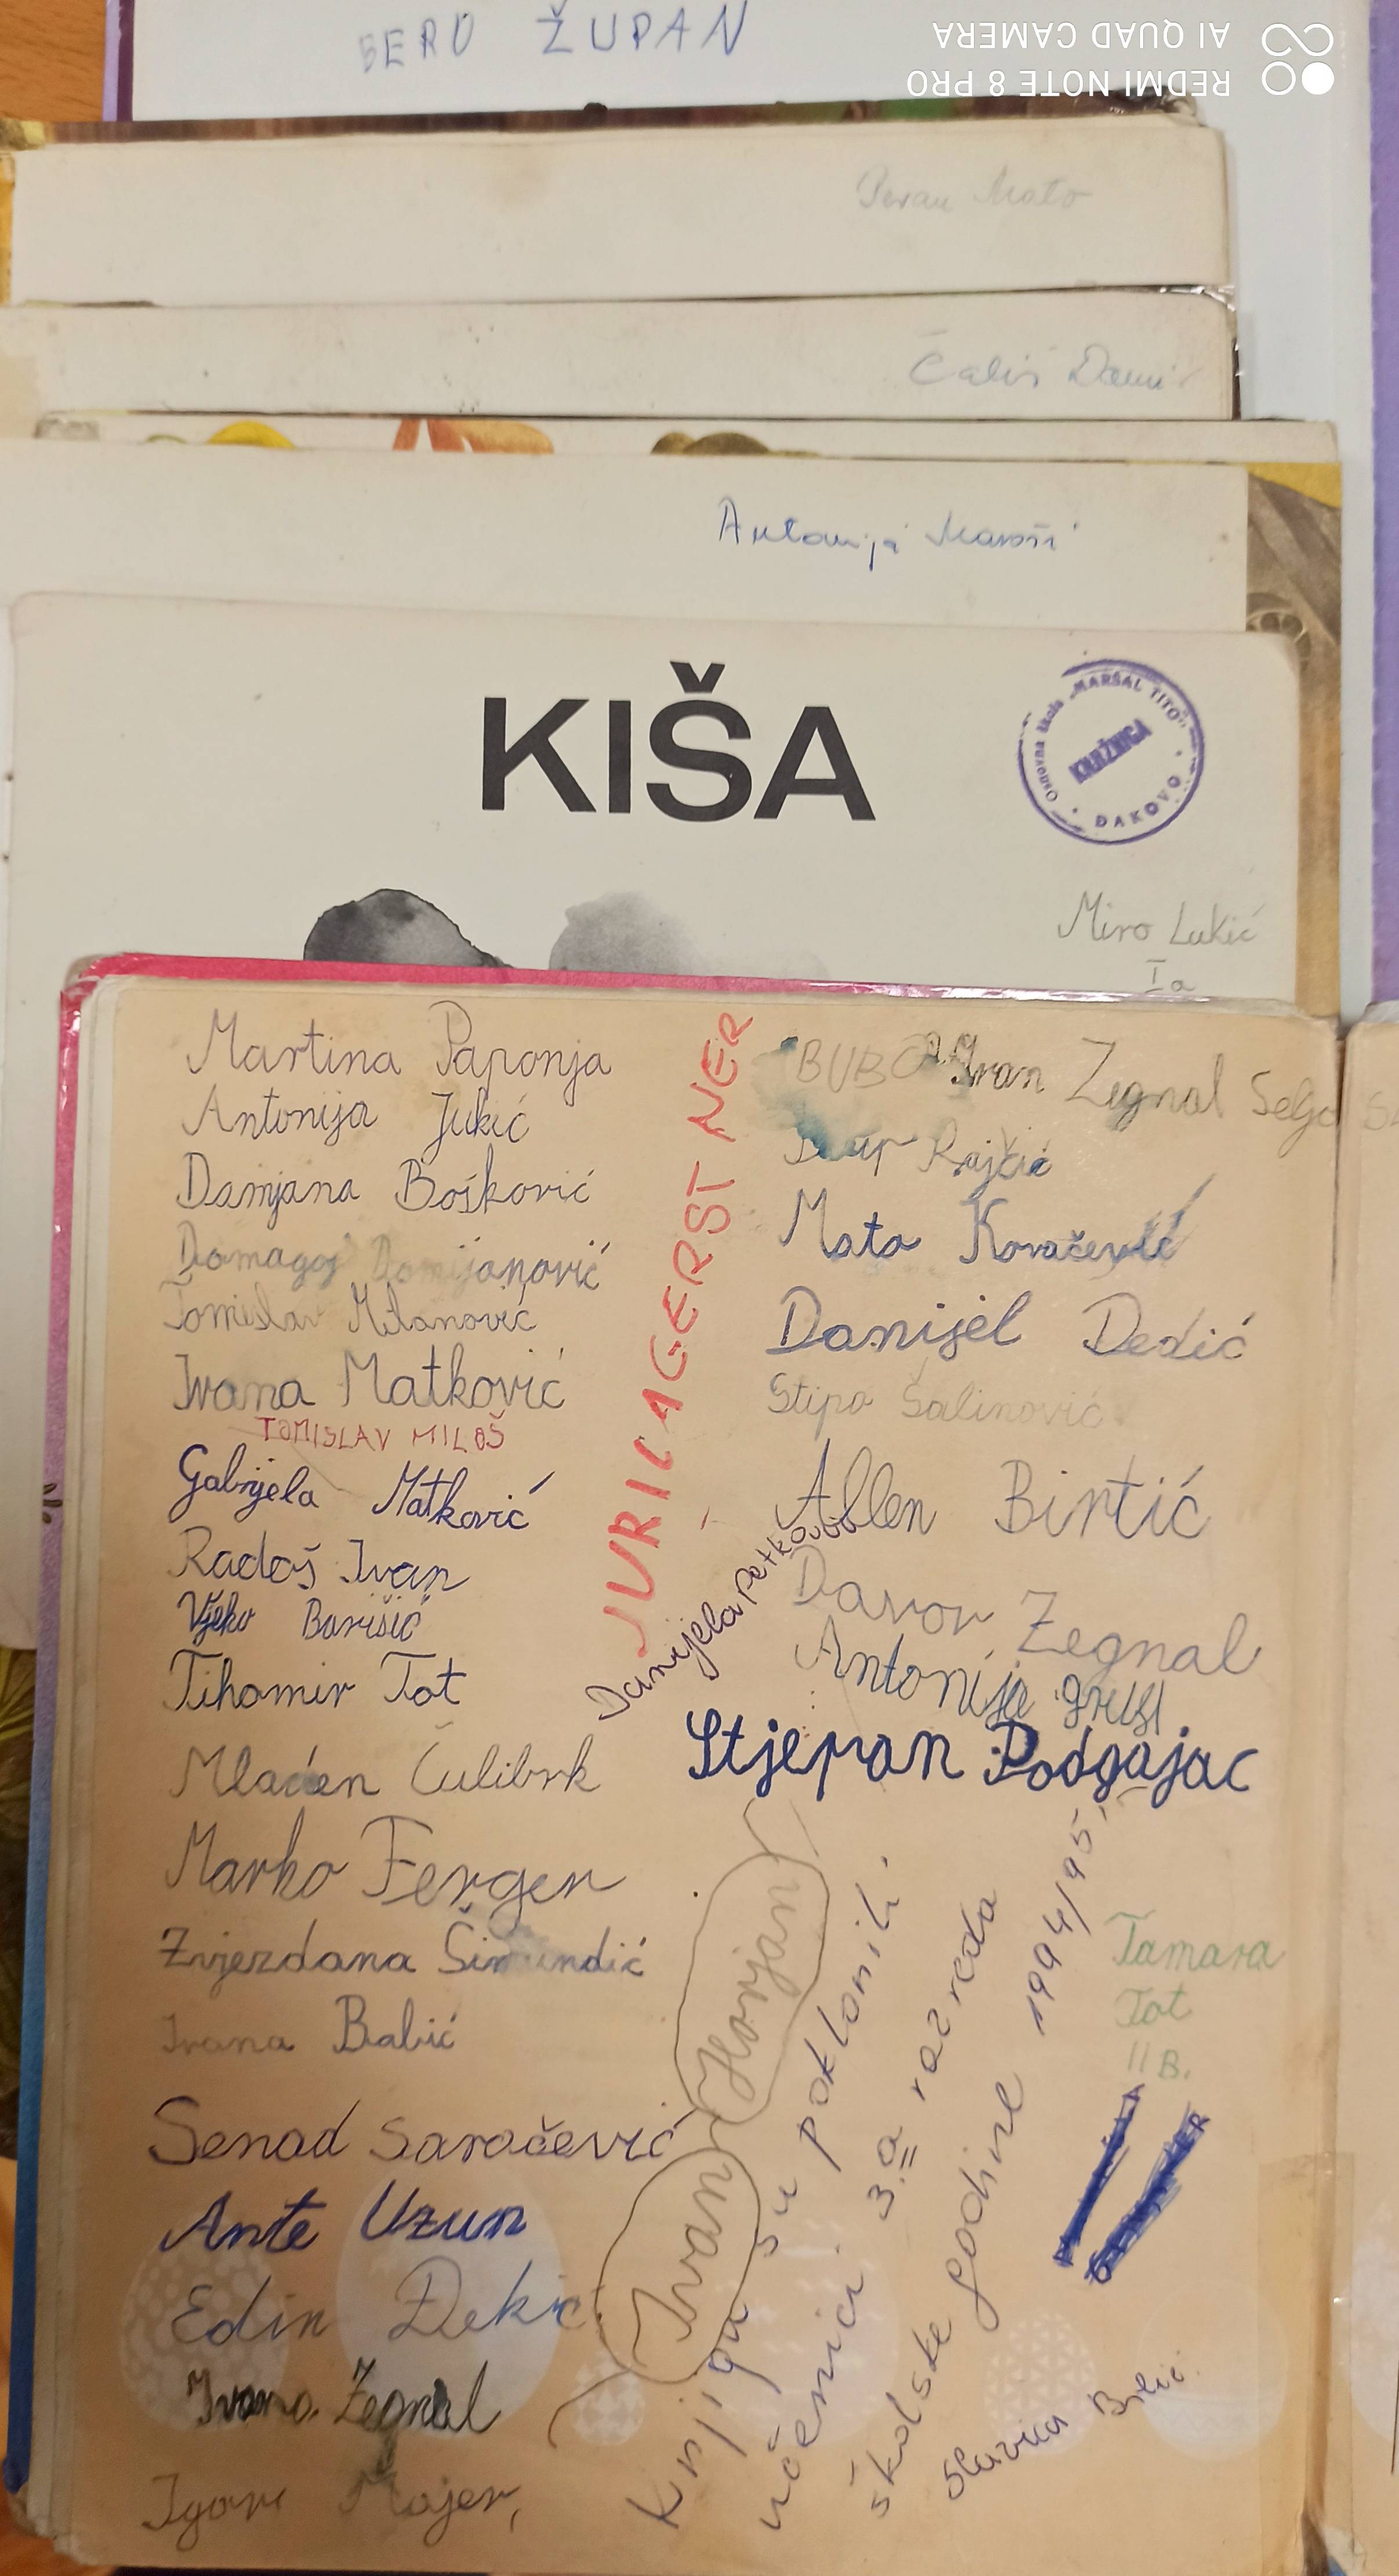 BERO ŽUPAN
REDMI NOTE 8 PRO
AI QUAD CAMERA
Mato
Antonija
KIŠA
Osnovna škola „MARŠAL TITO"
KNJIŽNICA
ĐAKOVO
Miro Lukić
Ia
Martina Paponja
Antonija Jukić
Damjana Bošković
Domagoj Domijanović
Tomislav Milanović
Ivana Matković
TOMISLAV MILOŠ
Gabrijela Matković
Radoš Ivan
Vjeko Barišić
Tihomir Tot
Mladen Čulibrk
Marko Ferger
Zvjezdana Šimundić
Ivana Babić
Senad Saračević
Ante Uzun
Edin Đekić
Ivana Žegnal
Igor Majer,
Danijela Petković
Ivan Žegnal
Rajčić
Mato Kovačević
Danijel Dedić
Stipo Šalinović
Allen Birtić
Davor Žegnal
Antonija
Stjepan Podgajac
Ivan Horjan
Knjigu su poklonili
učenici 3.a razreda
školske godine 1994/95.
Slavica Bilić
Tamara
Tot
II B.